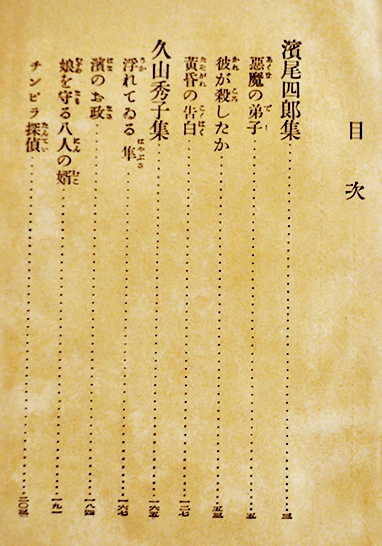 目次
濱尾四郎集……三
惡魔の弟子……五
彼が殺したか……五三
黄昏の告白……一二七
久山秀子集……一六五
浮れてゐる隼……一六七
濱のお政……一八四
娘を守る八人の婿……一九一
チンピラ探偵……二〇三